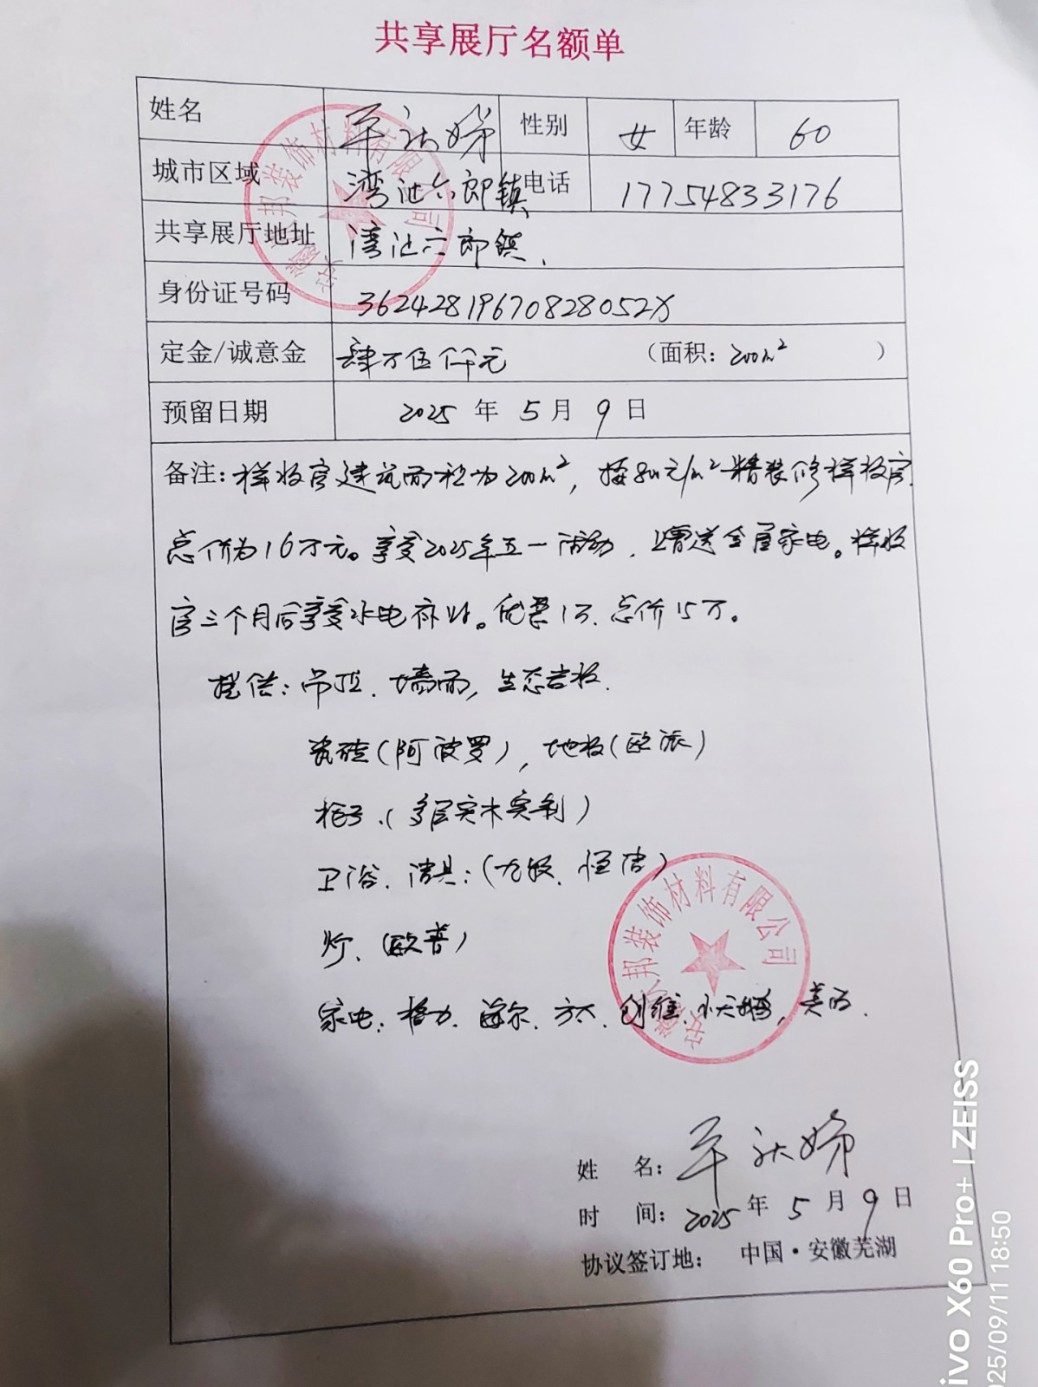 共享展厅名额单
姓名 性别 女 年龄 60
城市区域 湾沚六郎镇 电话 17754833176
共享展厅地址 湾沚六郎镇、
身份证号码 36242819670828052X
定金/诚意金 肆万伍仟元 (面积: 200m² )
预留日期 2025 年 5 月 9 日
备注: 样板房建筑面积为200m², 按800元/m²精装修样板房,
总价为16万元。享受2025年五一活动,赠送全屋家电。样板
房三个月后享受水电补贴。优惠1万、总价15万。
提供: 吊顶、墙面, 生态岩板.
瓷砖(阿波罗), 地板(欧派)
柜子.(多层实木)
卫浴、洁具:(九牧、恒洁)
灯、(欧普)
家电: 格力、海尔、方太、创维、小天鹅, 美的.
装饰材料有限公司
邦装饰材料有限公司
姓 名:
时 间: 2025 年 5 月 9 日
协议签订地: 中国·安徽芜湖
ivo X60 Pro+ | ZEISS
25/09/11 18:50